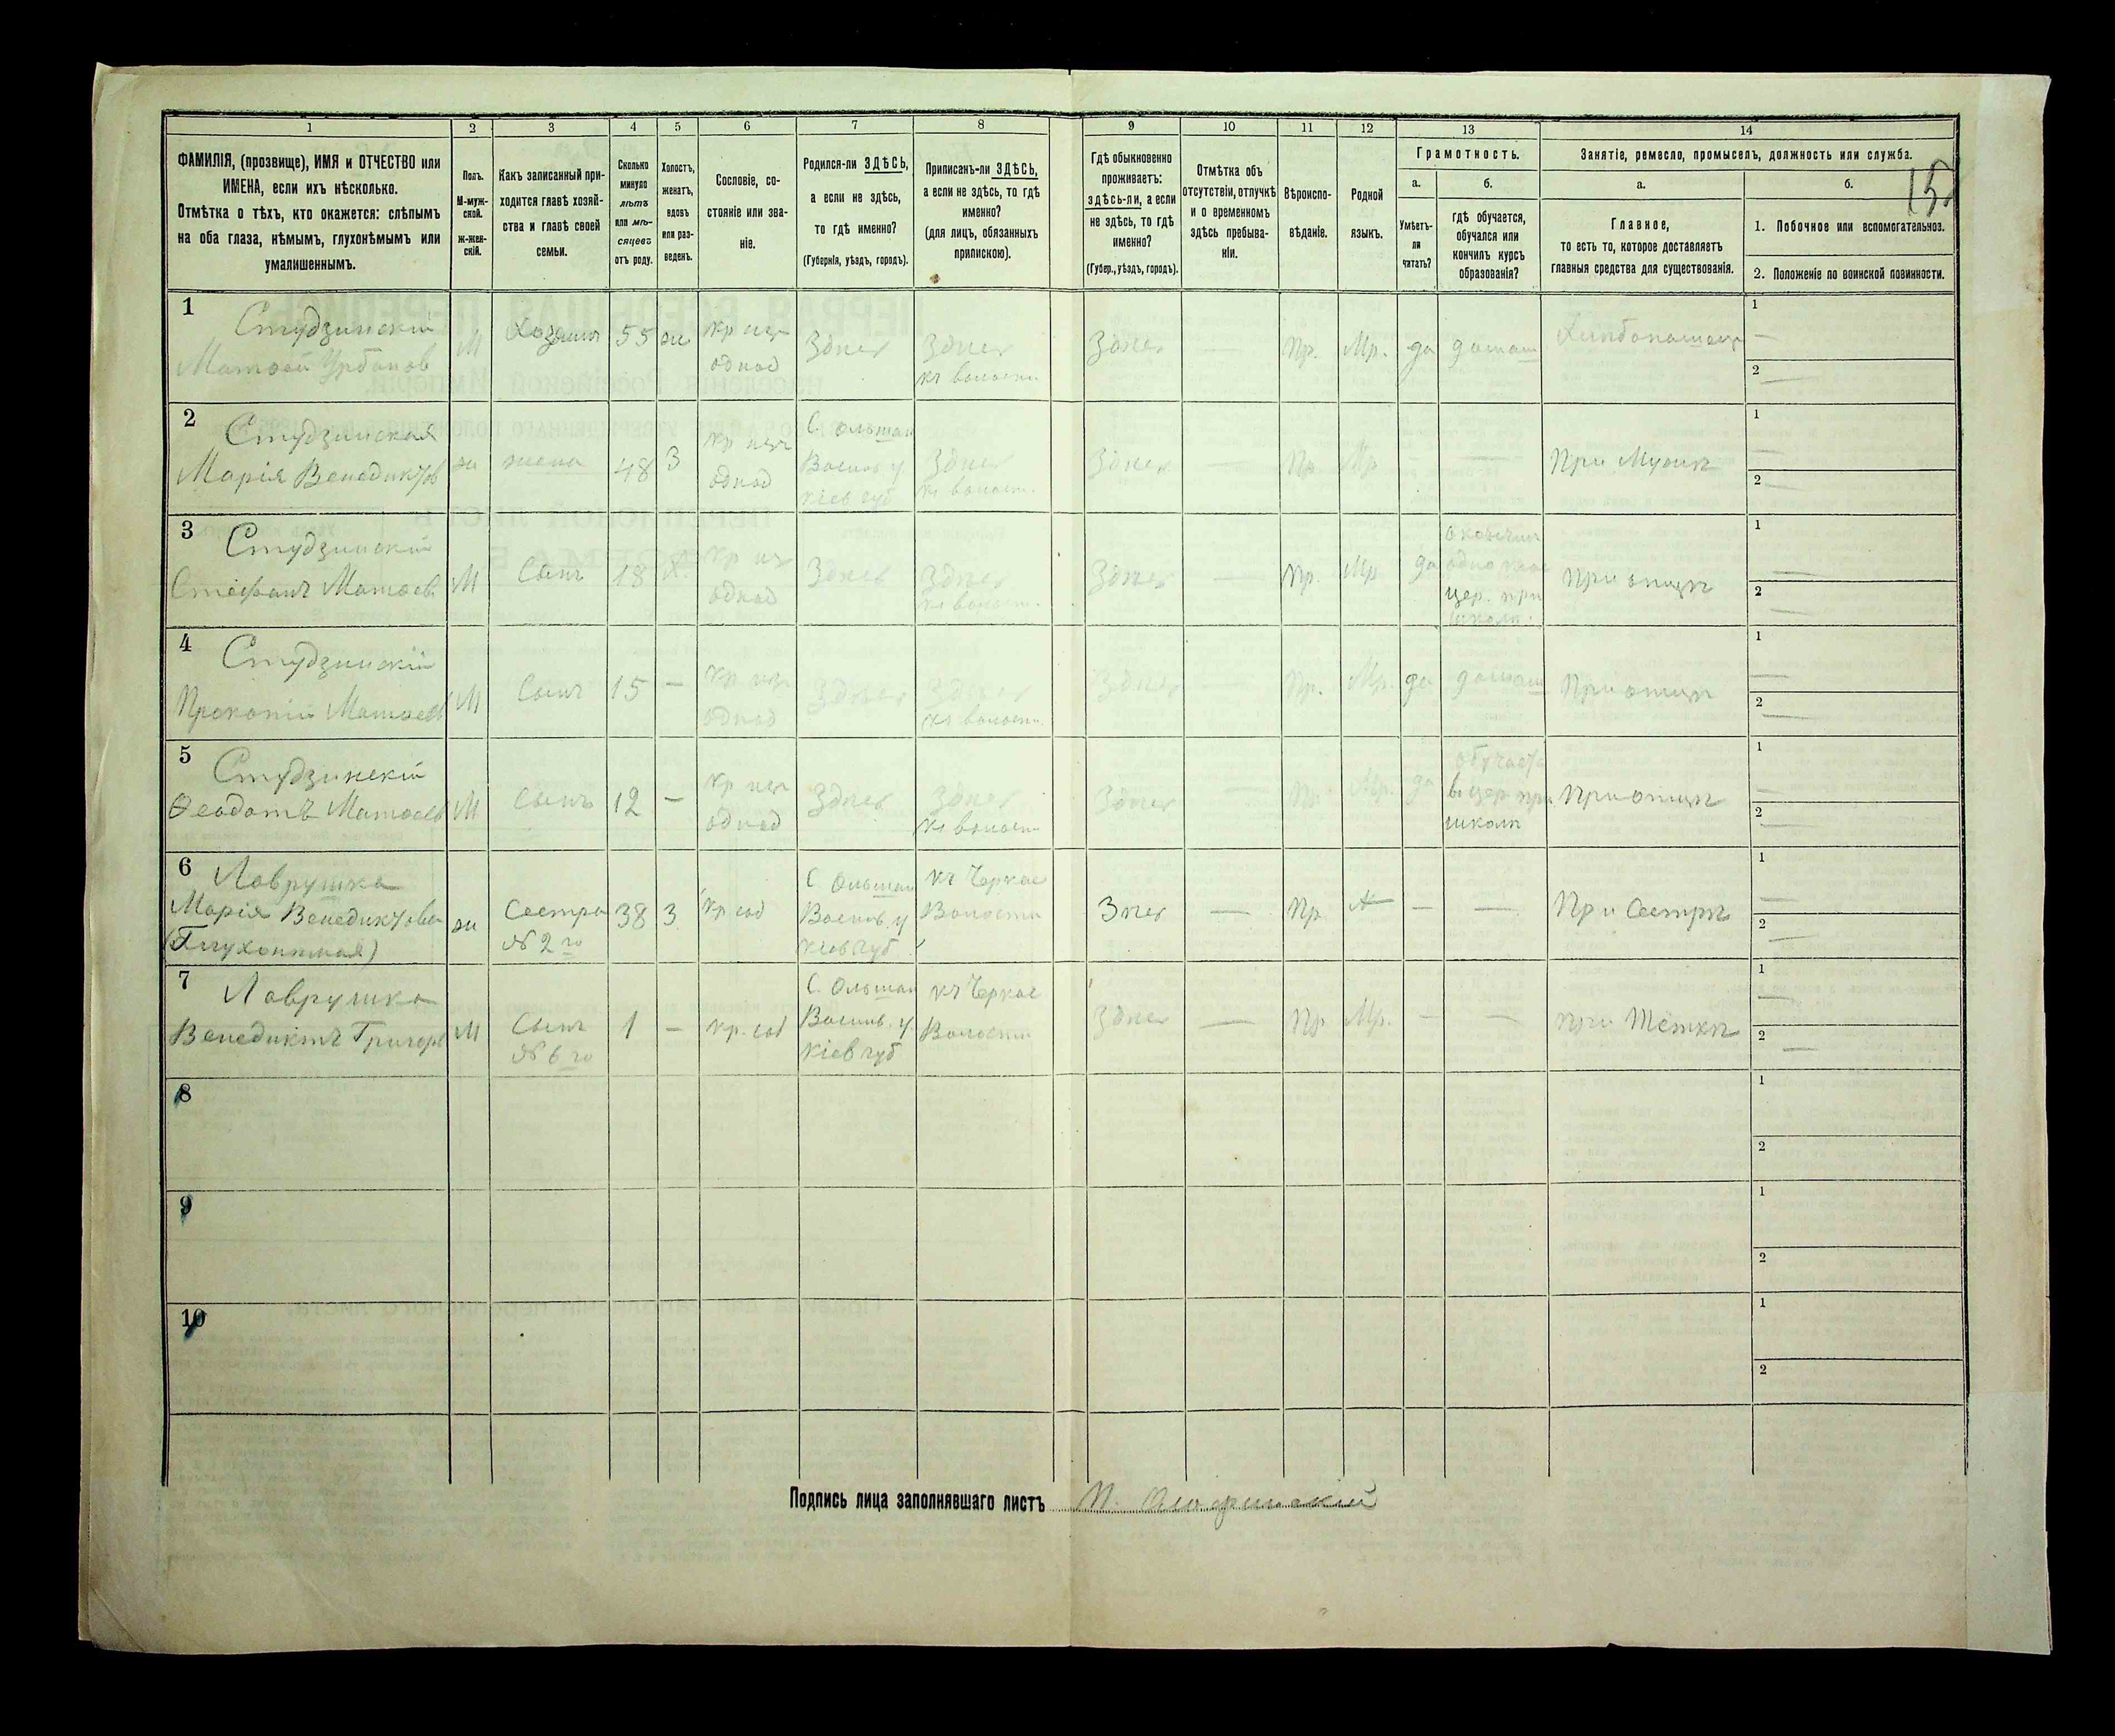 1 2 3 4 5 6 7 8 9 10 11 12 13 14
ФАМИЛІЯ, (прозвище), ИМЯ и ОТЧЕСТВО или
ИМЕНА, если ихъ нѣсколько.
Отмѣтка о тѣхъ, кто окажется: слѣпымъ
на оба глаза, нѣмымъ, глухонѣмымъ или
умалишеннымъ.
Полъ.
М-муж-
ской.
ж-жен-
скій.
Какъ записанный при-
ходится главѣ хозяй-
ства и главѣ своей
семьи.
Сколько
минуло
лѣтъ
или мѣ-
сяцевъ
отъ роду.
Холостъ,
женатъ,
вдовъ
или раз-
веденъ.
Сословіе, со-
стояніе или зва-
ніе.
Родился-ли ЗДѢСЬ,
а если не здѣсь,
то гдѣ именно?
(Губернія, уѣздъ, городъ).
Приписанъ-ли ЗДѢСЬ,
а если не здѣсь, то гдѣ
именно?
(для лицъ, обязанныхъ
припискою).
Гдѣ обыкновенно
проживаетъ:
здѣсь-ли, а если
не здѣсь, то гдѣ
именно?
(Губер., уѣздъ, городъ).
Отмѣтка объ
отсутствіи, отлучкѣ
и о временномъ
здѣсь пребыва-
ніи.
Вѣроиспо-
вѣданіе.
Родной
языкъ.
Грамотность.
а.
Умѣетъ-
ли
читать?
б.
гдѣ обучается,
обучался или
кончилъ курсъ
образованія?
Занятіе, ремесло, промыселъ, должность или служба.
а.
Главное,
то есть то, которое доставляетъ
главныя средства для существованія.
б.
1. Побочное или вспомогательное.
2. Положеніе по воинской повинности.
1
Студзинскій
Матвей Урбанов
М
Хозяинъ
55
ж
одмод
Здѣсь
Здѣсь
къ волости
Здѣсь
—
Пр.
Мр.
да
домаш
Хлѣбопашецъ
1 —
2 —
2
Студзинская
Марія Венедиктов
ж
жена
48
З
одмод
С Ольшан
Васильк у
Кіев губ
Здѣсь
къ волост.
Здѣсь
—
Пр
Мр
—
—
При Мужѣ
1 —
2 —
3
Студзинскій
Стефанъ Матвев.
М
Сынъ
18
Х
Здѣсь
Здѣсь
къ волост.
Здѣсь
—
Пр.
Мр
да
окончил
одно клас
цер. при
школѣ.
При отцѣ
1 —
2 —
4
Студзинскій
Прокопій Матвев
М
Сынъ
15
—
Здѣсь
Здѣсь
къ волости.
Здѣсь
—
Пр.
Мр.
да
домаш
При отцѣ
1 —
2 —
5
Студзинскій
Ѳеодотъ Матвев
М
Сынъ
12
—
Здѣсь
Здѣсь
къ волости
Здѣсь
—
Пр
Мр.
да
обучает
в цер при
школѣ
При отцѣ
1 —
2 —
6
Лаврушка
Марія Венедиктова
(Глухонѣмая)
ж
Сестра
№ 2 го
38
З
кр соб
С Ольшан
Васильк. у
Кіев губ.
къ Черкас
Волости
Знес
—
Пр.
—
—
При Сестрѣ
1 —
2 —
7
Лаврушка
Венедиктъ Григор
М
Сынъ
№ 6 го
1
—
кр. соб
С. Ольшан
Васильк. у.
Кіев губ
къ Черкас
Волости
Здѣсь
—
Пр
Мр.
—
—
при Тёткѣ
1 —
2 —
8
1
2
9
1
2
10
1
2
Подпись лица заполнявшаго листъ